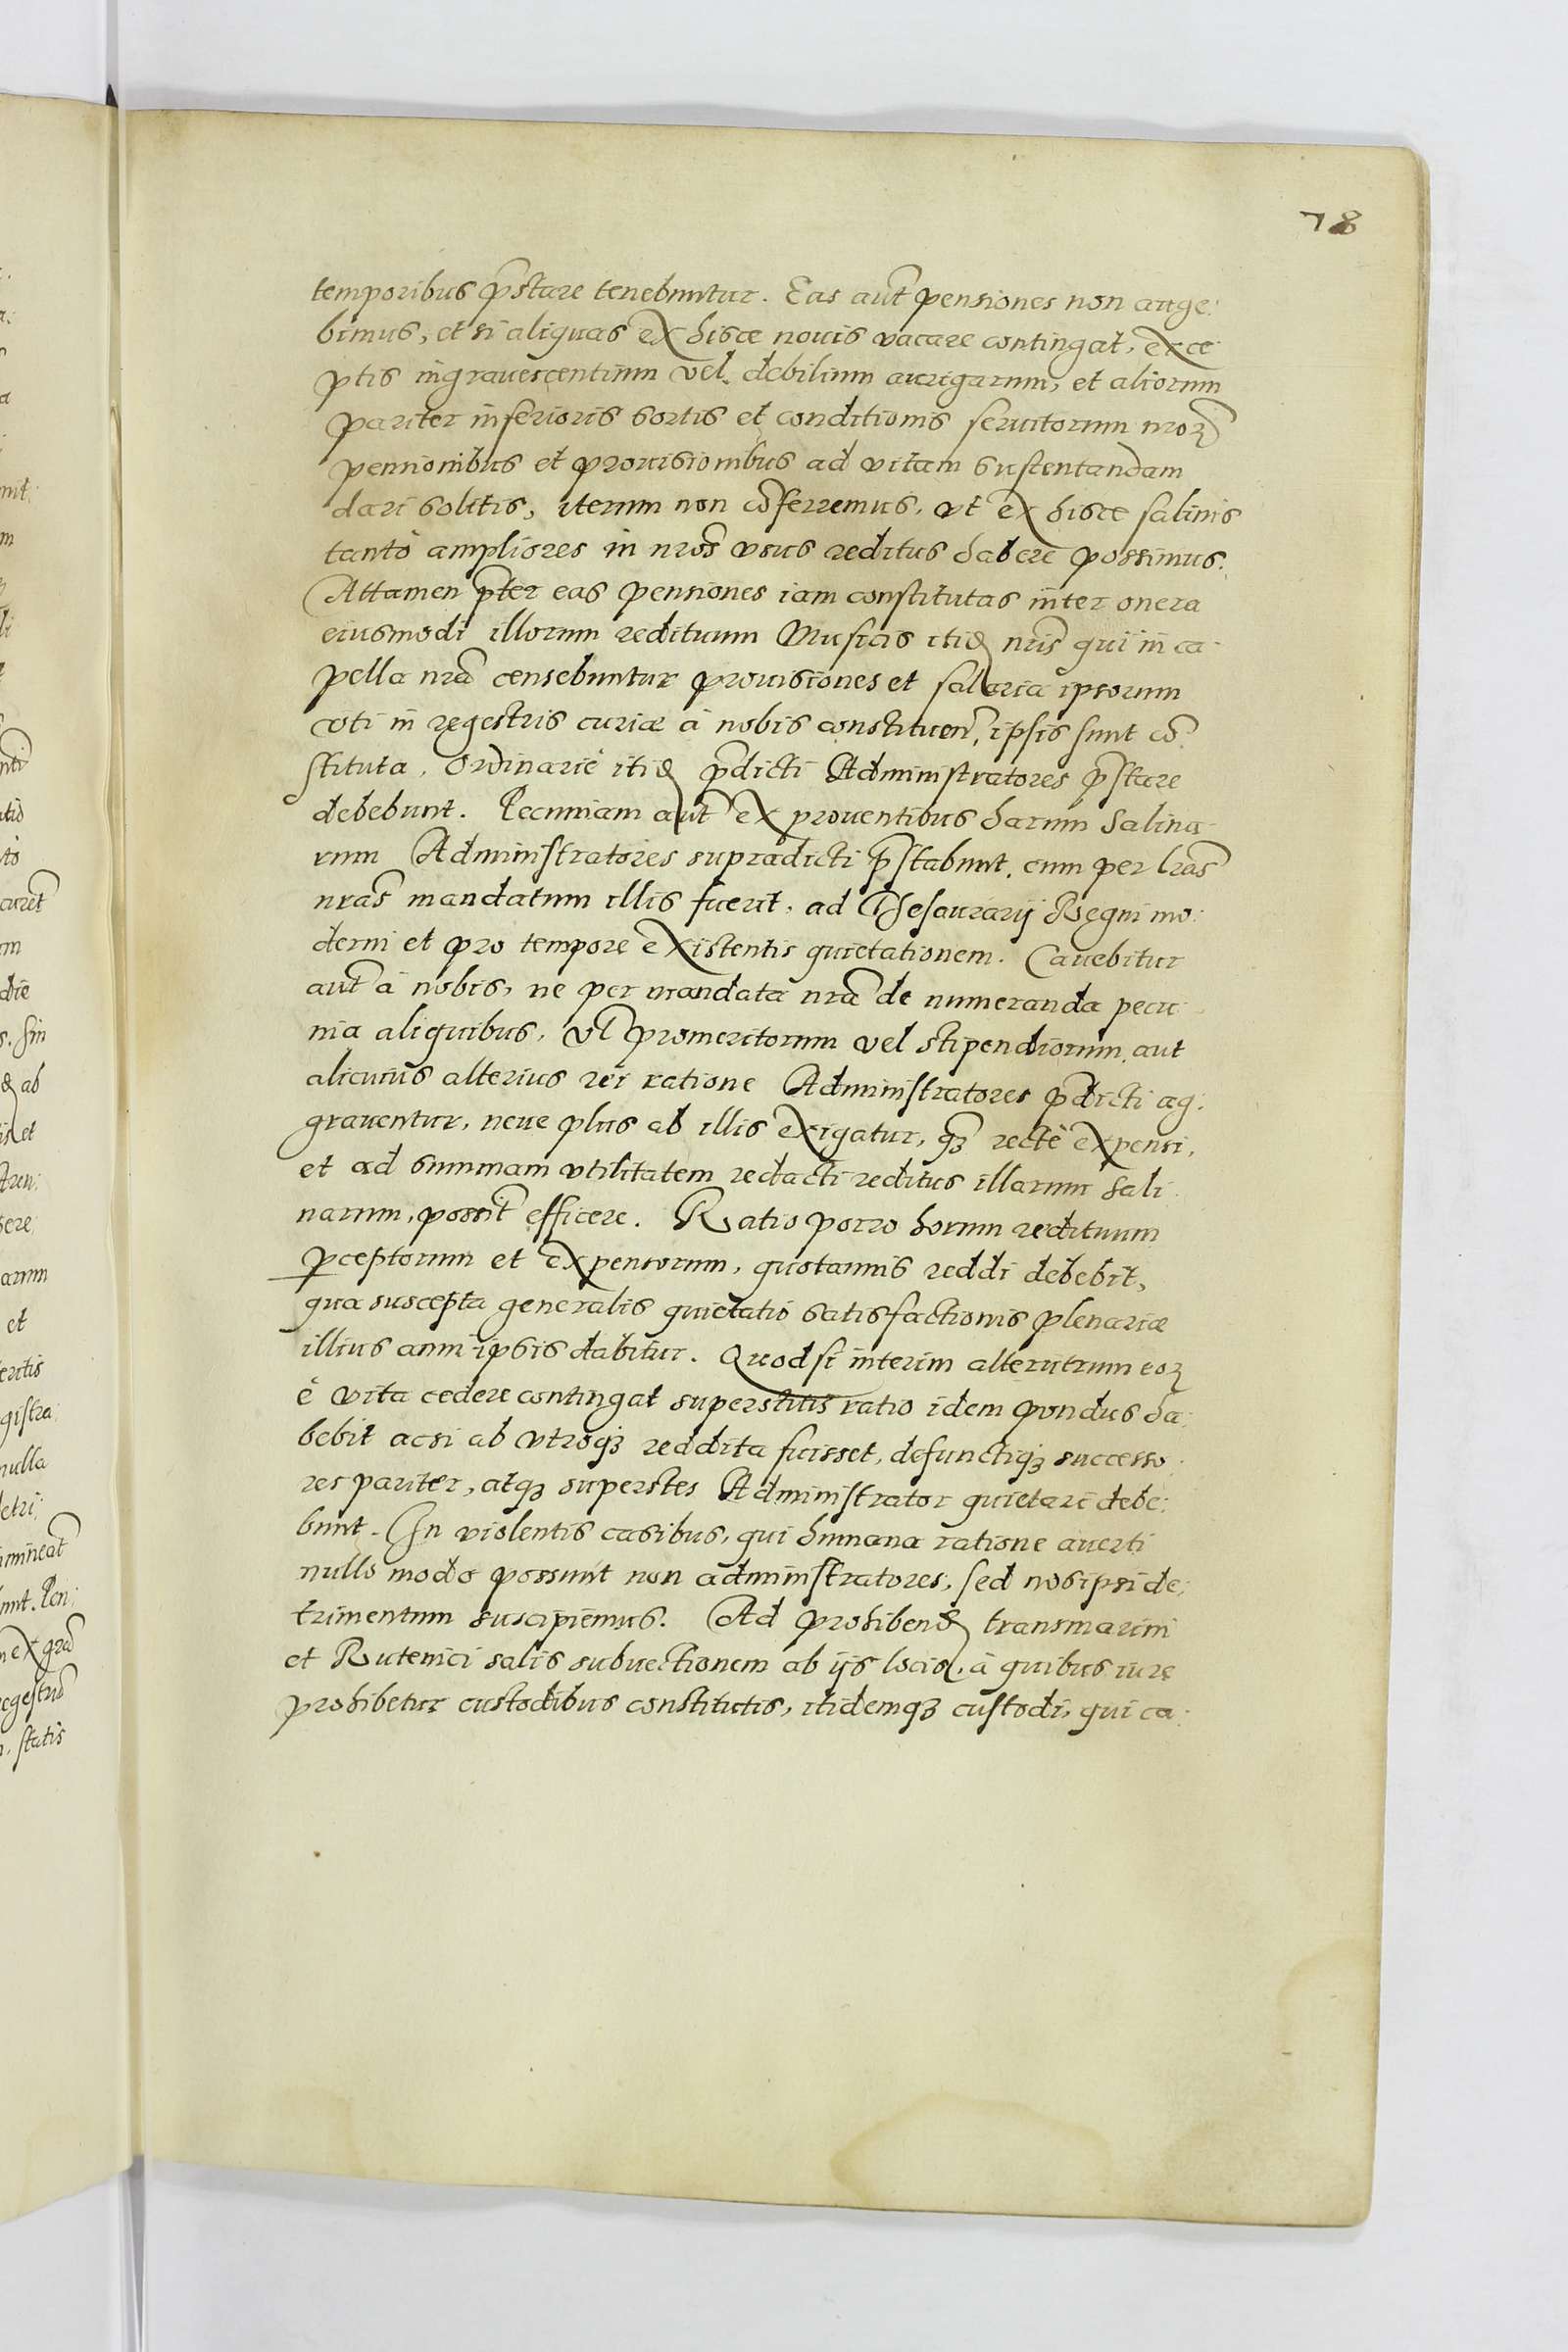 78
temporibus p̃stare tenebuntur. Eas aut̃ pensiones non auge:
bimus, et si aliquas ex hisce nouis vacare contingat, exce
ptis ingrauescentium vel debilium aurigarum, et aliorum
pariter inferioris sortis et conditionis seruitorum nr̃oꝝ
pensionibus et prouisionibus ad vitam sustentandam
dari solitis, iterum non cõferremus, vt ex hisce salinis
tantò ampliores in nr̃os vsus reditus habere possimus.
Attamen p̃ter eas pensiones iam constitutas inter onera
eiusmodi illorum redituum Musicis itid nr̃is qui in ca:
pella nr̃a censebuntur prouisiones et salaria ipsorum
vti in regestris curiæ à nobis constituen̄, ipsis sunt cõ
stituta, Ordinariè itid p̃dicti Administratores p̃stare
debebunt. Pecuniam aut̃ ex prouentibus harum Salina
rum Administratores supradicti p̃stabunt, cum per lr̃as
nr̃as mandatum illis fuerit, ad Thesaurarij Regni mo:
derni et pro tempore existentis quietationem. Cauebitur
aut̃ à nobis, ne per mandata nr̃a de numeranda pecu
nia aliquibus, vl̃ promeritorum vel stipendiorum, aut
alicuius alterius rei ratione Administratores p̃dicti ag:
grauentur, neue plus ab illis exigatur, qꝫ rectè expensi,
et ad summam vtilitatem redacti reditus illarum Sali
narum, possĩt efficere. Ratio porro horum redituum
ꝑceptorum et expensorum, quotannis reddi debebit,
qua suscepta generalis quietatio satisfactionis plenariæ
illius anni ipsis dabitur. Quod si interim alterutrum eoꝝ
è vita cedere contingat superstitis ratio idem pondus ha:
bebit acsi ab vtroqꝫ reddita fuisset, defunctiqꝫ successo:
res pariter, atqꝫ superstes Administrator quietari debe:
bunt. In violentis casibus, qui humana ratione auerti
nullo modo possunt non administratores, sed nos ipsi de:
trimentum suscipiemus. Ad prohibend transmarini
et Rutenici salis subuectionem ab ijs locis, à quibus iure
prohibetur custodibus constitutis, itidemqꝫ custodi, qui ca: